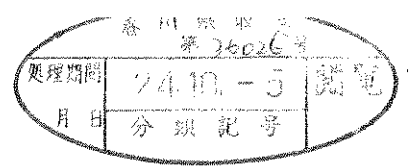 香川県収受
第26026号
処理期間
24.10.-5
月日
分類記号